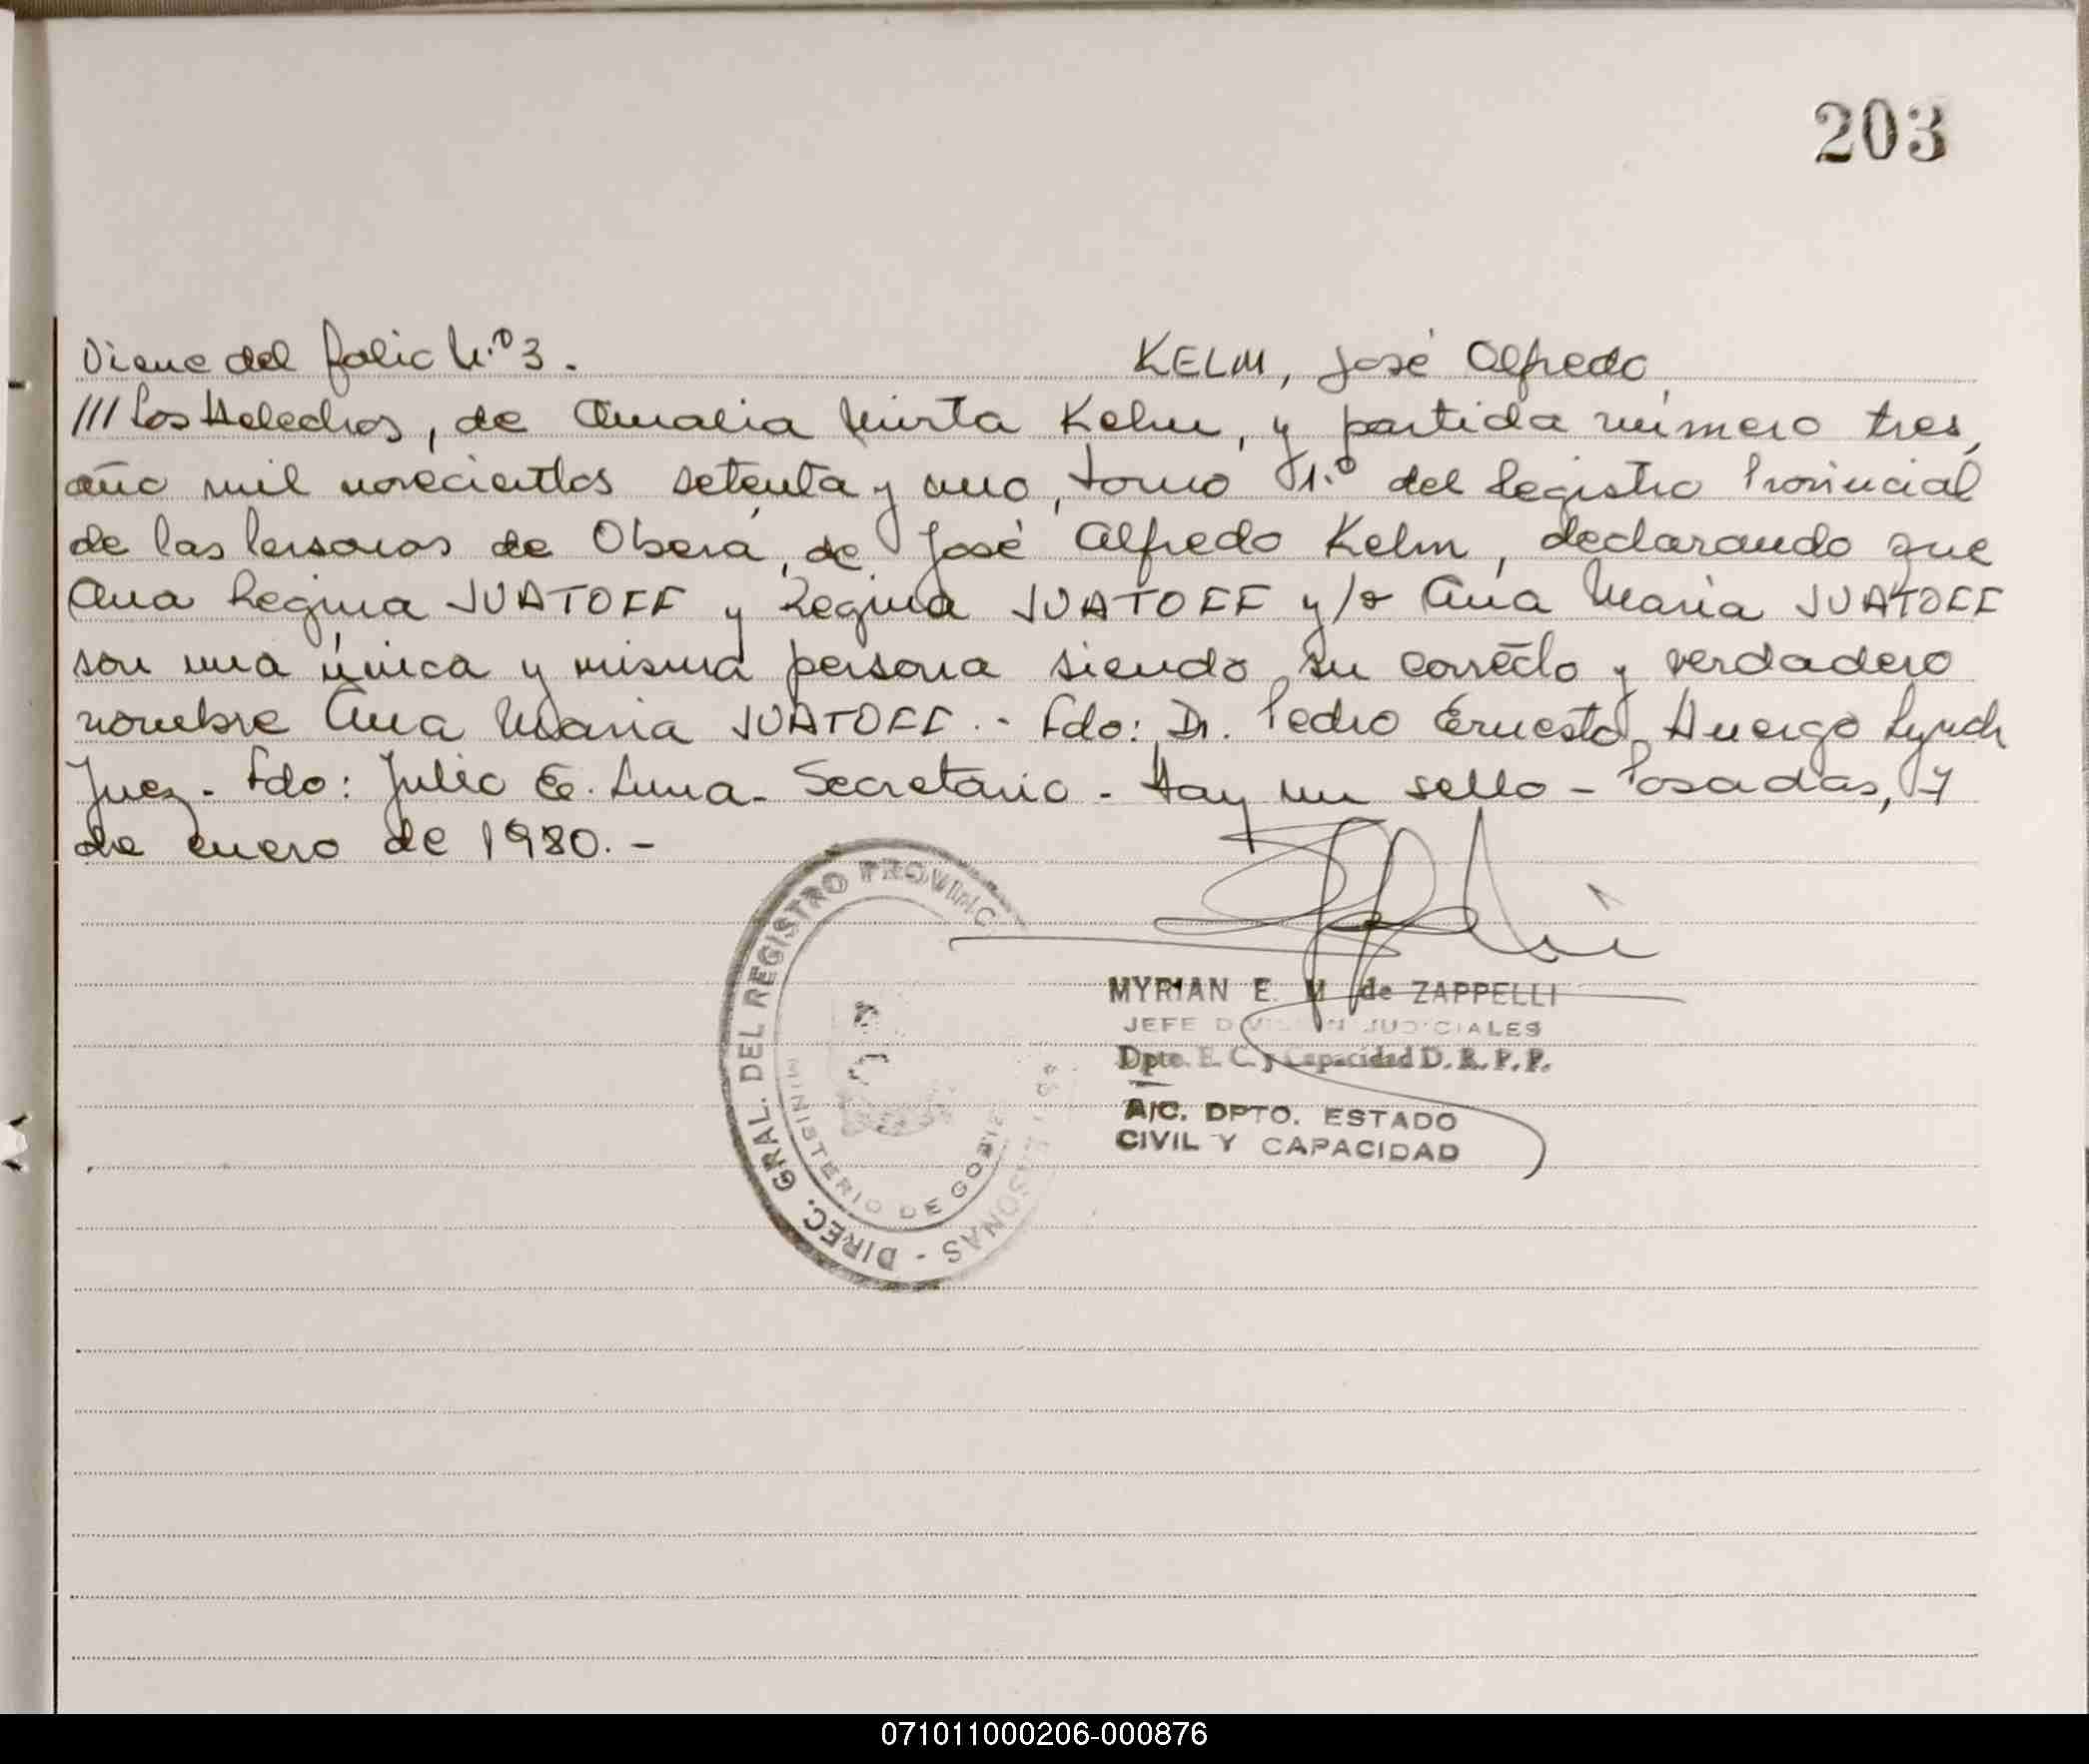 203
Viene del folio N.º 3. KELM, José Alfredo
/// Los Helechos, de Amalia Mirta Kelm, y partida número tres,
año mil novecientos setenta y uno, tomo 1.º del Registro Provincial
de las Personas de Oberá, de José Alfredo Kelm, declarando que
Ana Regina JUATOFF y Regina JUATOFF y/o Ana Maria JUATOFF
son una única y misma persona siendo su correcto y verdadero
nombre Ana Maria JUATOFF.- Fdo: Dr. Pedro Ernesto Huergo Lynch
Juez - Fdo: Julio E. Luna - Secretario - Hay un sello - Posadas, 7
de enero de 1980.-
DIREC. GRAL. DEL REGISTRO PROVINC
SONAS -
MINISTERIO DE GOBIE
MYRIAN E. M. de ZAPPELLI
JEFE DIVISION JUDICIALES
Dpto. E. C. y Capacidad D. R. P. P.
A/C. DPTO. ESTADO
CIVIL Y CAPACIDAD
071011000206-000876